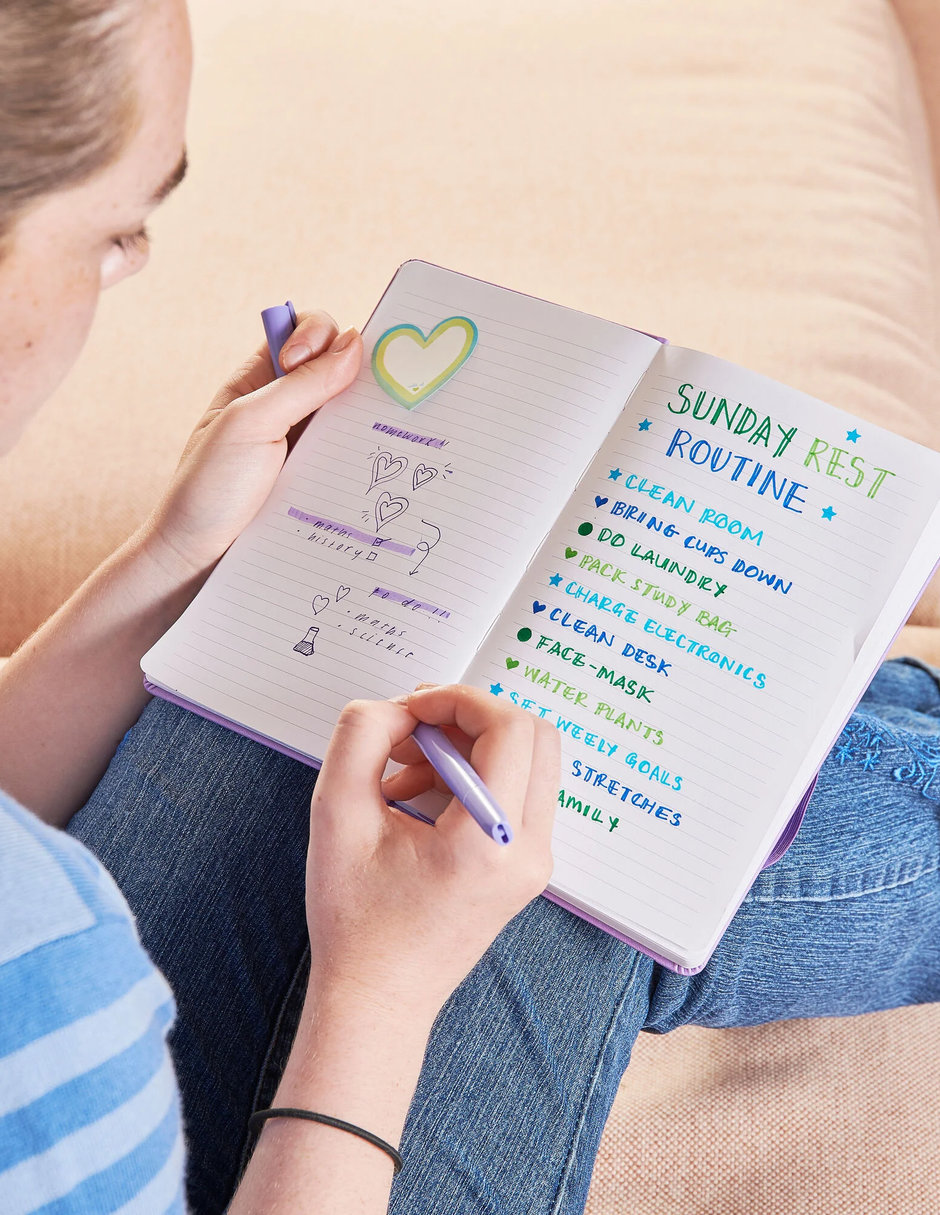 homework!!
maths
history
to do !!!
maths
science
SUNDAY REST
ROUTINE
CLEAN ROOM
BRING CUPS DOWN
DO LAUNDRY
PACK STUDY BAG
CHARGE ELECTRONICS
CLEAN DESK
FACE-MASK
WATER PLANTS
SET WEELY GOALS
STRETCHES
AMILY